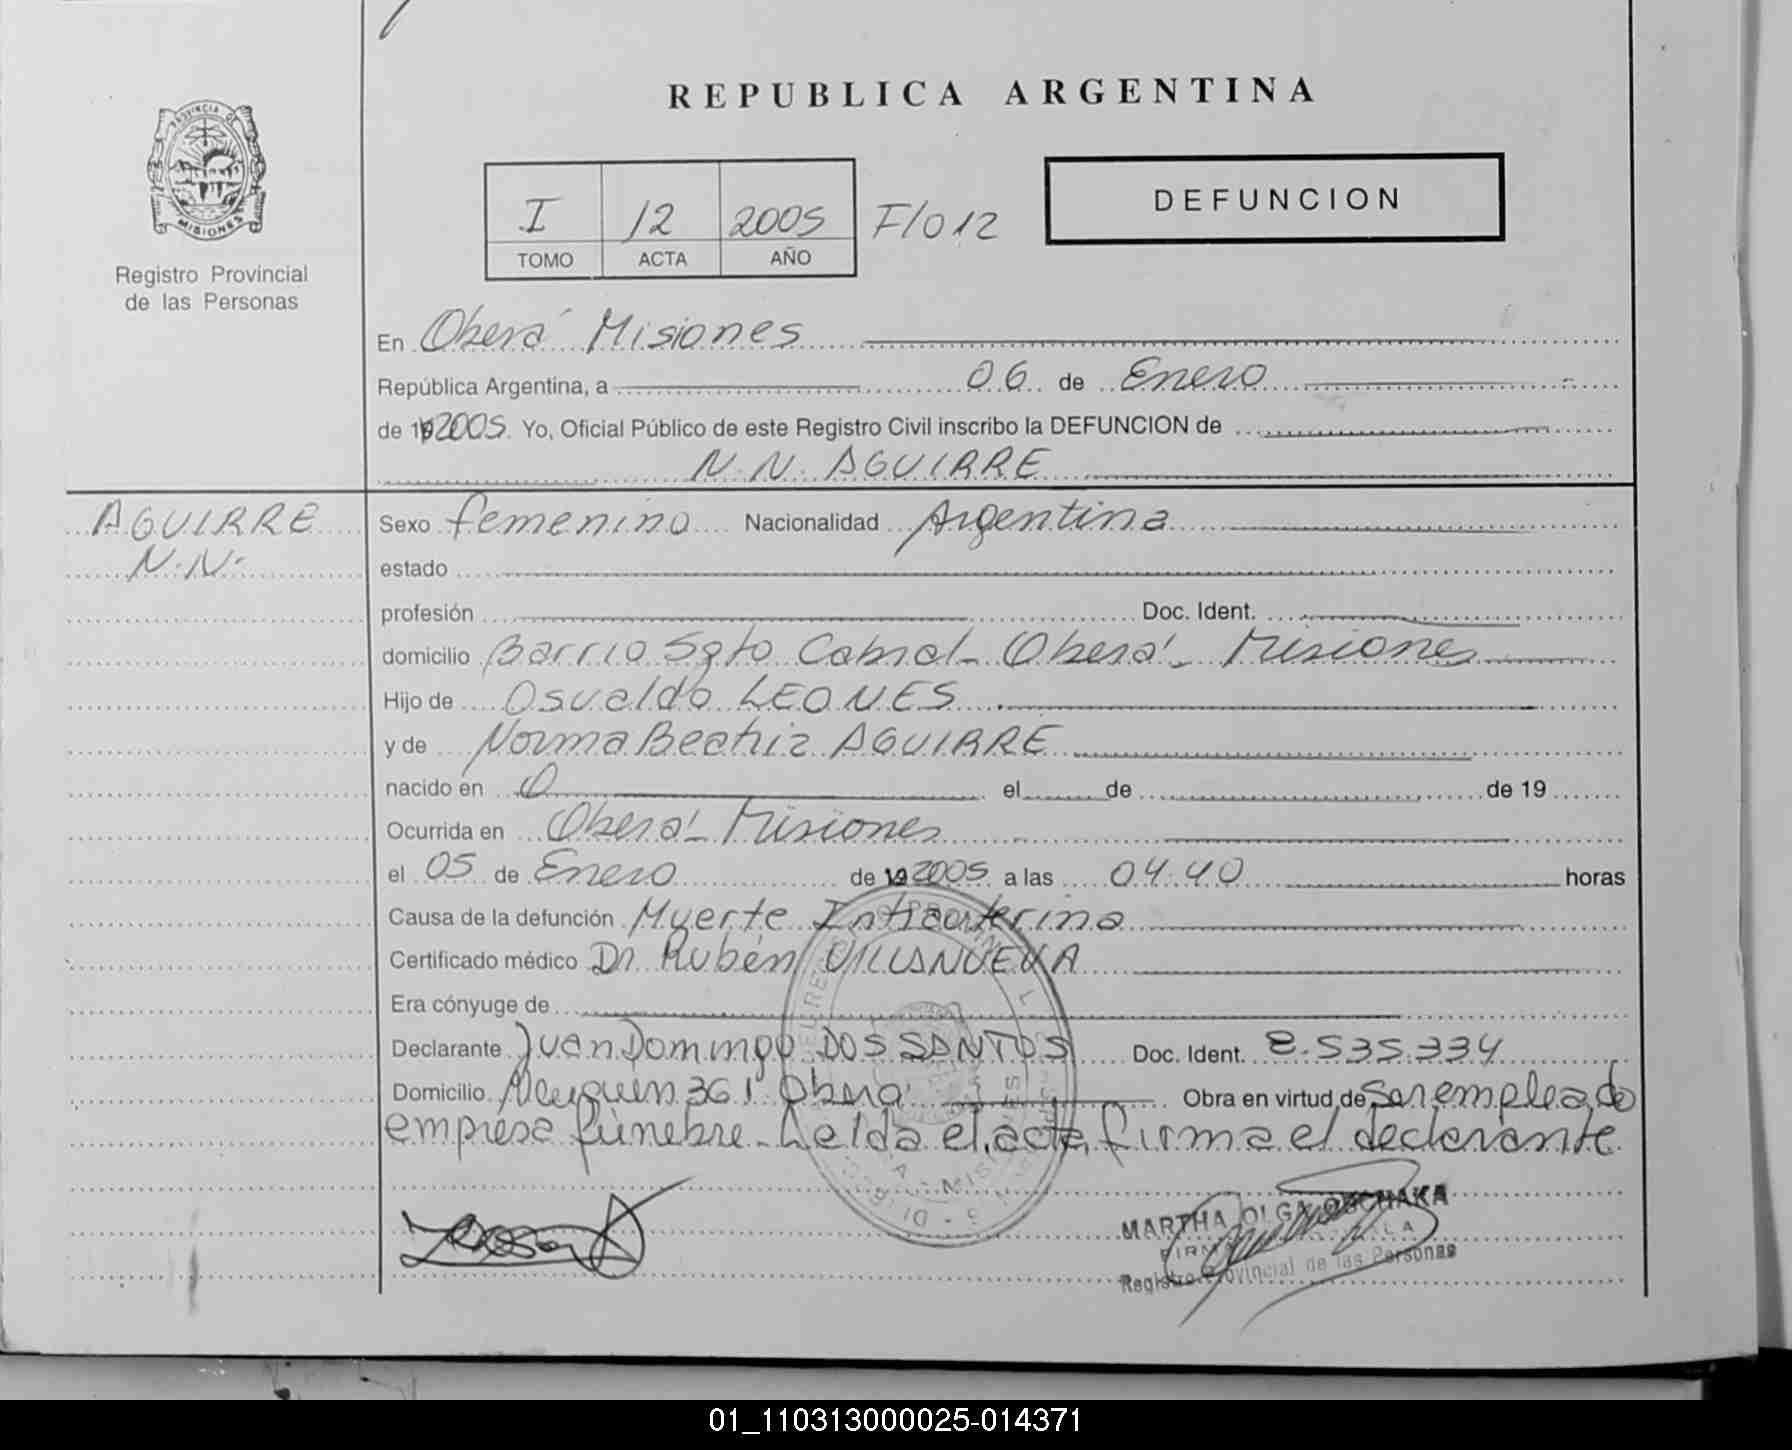 REPUBLICA ARGENTINA
PROVINCIA DE
MISIONES
Registro Provincial
de las Personas
I 12 2005 F/012
TOMO ACTA AÑO
DEFUNCION
En Oberá Misiones
República Argentina, a 06 de Enero
de 19 2005. Yo, Oficial Público de este Registro Civil inscribo la DEFUNCION de
N.N. AGUIRRE
AGUIRRE
N.N.
Sexo femenino Nacionalidad Argentina
estado
profesión Doc. Ident.
domicilio Barrio Sgto Cabral - Oberá - Misiones
Hijo de Osvaldo LEONES
y de Norma Beatriz AGUIRRE
nacido en O el de de 19
Ocurrida en Oberá - Misiones
el 05 de Enero de 19 2005 a las 04.40 horas
Causa de la defunción Muerte Intrauterina
Certificado médico Dr. Rubén VILLANUEVA
Era cónyuge de
Declarante Juan Domingo DOS SANTOS Doc. Ident. 8.535.334
Domicilio Neuquén 361 Oberá Obra en virtud de ser empleado
empresa fúnebre - Leída el acta, firma el declarante
MARTHA OLGA
Registro Provincial de las Personas
01_110313000025-014371